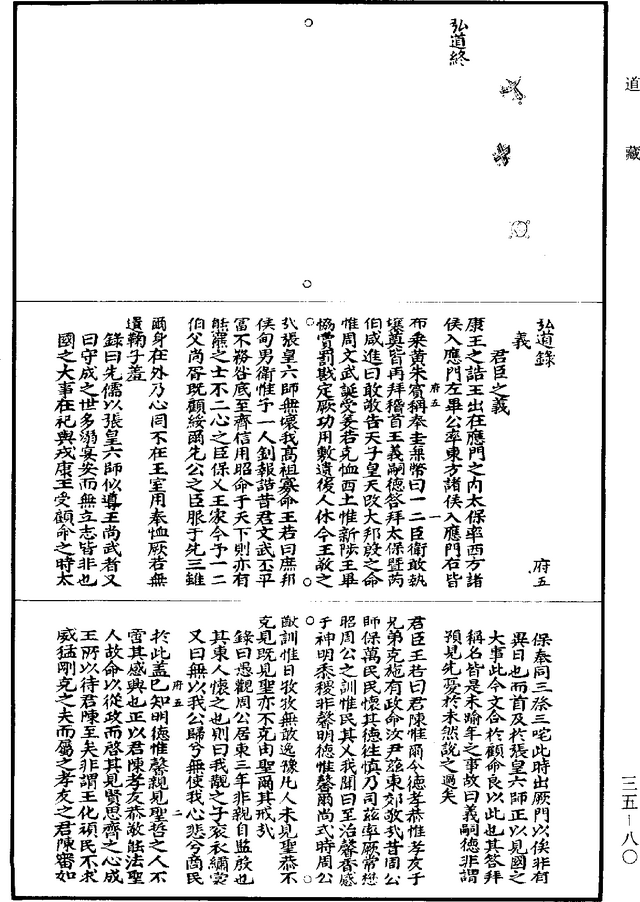 道藏
弘道終
弘道錄
府五
義
君臣之義
康王之誥王出在應門之内太保率西方諸
侯入應門左畢公率東方諸侯入應門右皆
布乘黄朱賓稱奉圭兼幣曰一二臣衛敢執
壤奠皆再拜稽首王義嗣德答拜太保暨芮
伯咸進曰敢敬告天子皇天改大邦殷之命
惟周文武誕受羑若克恤西土惟新陟王畢
協賞罰戡定厥功用敷遺後人休今王敬之
哉張皇六師無壞我高祖寡命王若曰庶邦
侯甸男衛惟予一人釗報誥昔君文武丕平
富不務咎厎至齊信用昭明于天下則亦有
熊羆之士不二心之臣保乂王家今予一二
伯父尚胥既顧綏爾先公之臣服于先王雖
爾身在外乃心罔不在王室用奉恤厥若無
遺鞠子羞
錄曰先儒以張皇六師似導王尚武者又
曰守成之世多溺宴安而無立志皆非也
國之大事在祀與戎康王受顧命之時太
保奉同三祭三咤此時出厥門以俟非有
異日也而首及於張皇六師正以見國之
大事此今文合於顧命良以此也其答拜
稱名皆是未踰年之事故曰義嗣德非謂
預見先憂於未然說之過矣
君臣王若曰君陳惟爾令德孝恭惟孝友于
兄弟克施有政命汝尹兹東郊敬哉昔周公
師保萬民民懷其德往慎乃司兹率厥常懋
昭周公之訓惟民其乂我聞曰至治馨香感
于神明黍稷非馨明德惟馨爾尚式時周公
猷訓惟日孜孜無敢逸豫凡人未見聖若不
克見既見聖亦不克由聖爾其戒哉
錄曰愚觀周公居東三年非親自監殷也
其東人懷之也則曰我覯之子衮衣繡裳
又曰無以我公歸兮無使我心悲兮商民
於此蓋已知明德惟馨親見聖哲之人不
啻其感興也正以君陳孝友恭敬能法聖
人故命以從政而啓其見賢思齊之心成
王所以待君陳至矣非謂王化頑民不求
威猛剛克之夫而屬之孝友之君陳審如
府五
一
府五
二
三五－八〇